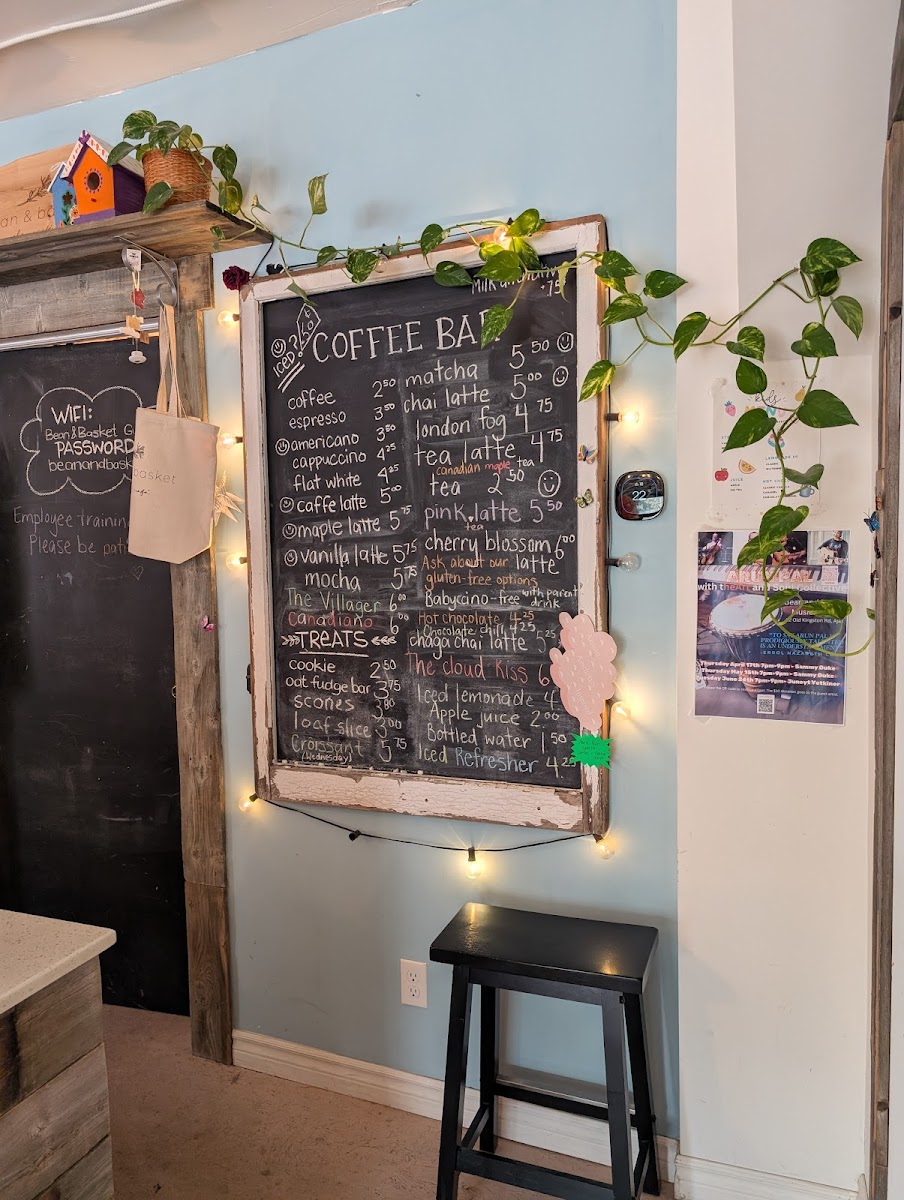 WIFI:
Bean & Basket Gu
PASSWORD
beanandbask
Employee training
Please be pati
basket
Milk
.75
iced?
COFFEE BAR
coffee 2.50
espresso 3.50
americano 3.50
cappuccino 4.25
flat white 4.25
caffe latte 5.00
maple latte 5.75
vanilla latte 5.75
mocha 5.75
The Villager 6.00
Canadiano 6.00
TREATS
cookie 2.50
oat fudge bar 3.75
scones 3.80
loaf slice 3.00
Croissant 5.75
(Wednesday)
matcha 5.50
chai latte 5.00
london fog 4.75
tea latte 4.75
canadian maple tea
tea 2.50
pink latte 5.50
tea
cherry blossom 6.00
latte
Ask about our
gluten-free options
Babycino - free with parent
drink
Hot chocolate 4.25
Chocolate chill 4.25
chaga chai latte 5.25
The cloud kiss 6
Iced lemonade 4
Apple juice 2.00
Bottled water 1.50
Iced Refresher 4.25
22
kids
JUICE
with theArt and Soul
Music
Old Kingston Rd,
IS AN UNDERSTATEMENT
Thursday April 17th 7pm-9pm - Sammy Duke
Thursday May 15th 7pm-9pm - Sammy Duke